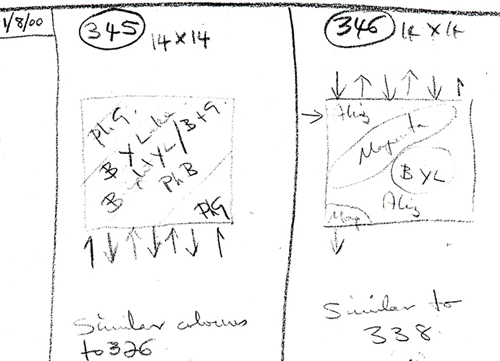 1/8/00
345
14 x 14
Ph G.
B Y Lake
Bright YL / B+G
Ph B
PhG
Similar colours
to 326
346
14 x 14
Aliz
Magenta
B YL
Aliz
Mag
Similar to
338